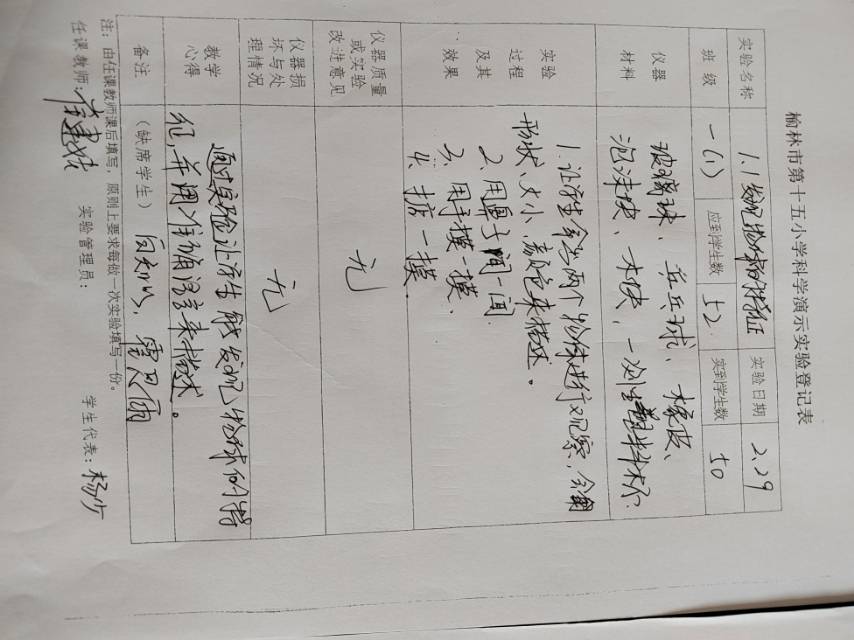 榆林市第十五小学科学演示实验登记表
实验名称 1.1发现物体的特征 实验日期 2.29
班级 一(1) 应到学生数 52 实到学生数 50
仪器
材料
玻璃球、乒乓球、橡皮、
泡沫块、木块、一次性塑料杯
实验
过程
及其
效果
1.让学生拿出两个物体进行观察,会用
形状、大小、颜色来描述。
2.用鼻子闻一闻
3、用手摸一摸、
4、掂一
仪器质量
或实验
改进意见
无
仪器损
坏与处
理情况
无
教学
心得
通过实验让学生能发现物体的特
征,并用准确语言来描述。
备注 (缺席学生)
注:由任课教师课后填写,原则上要求每做一次实验填写一份。
任课教师: 实验管理员: 学生代表:杨少